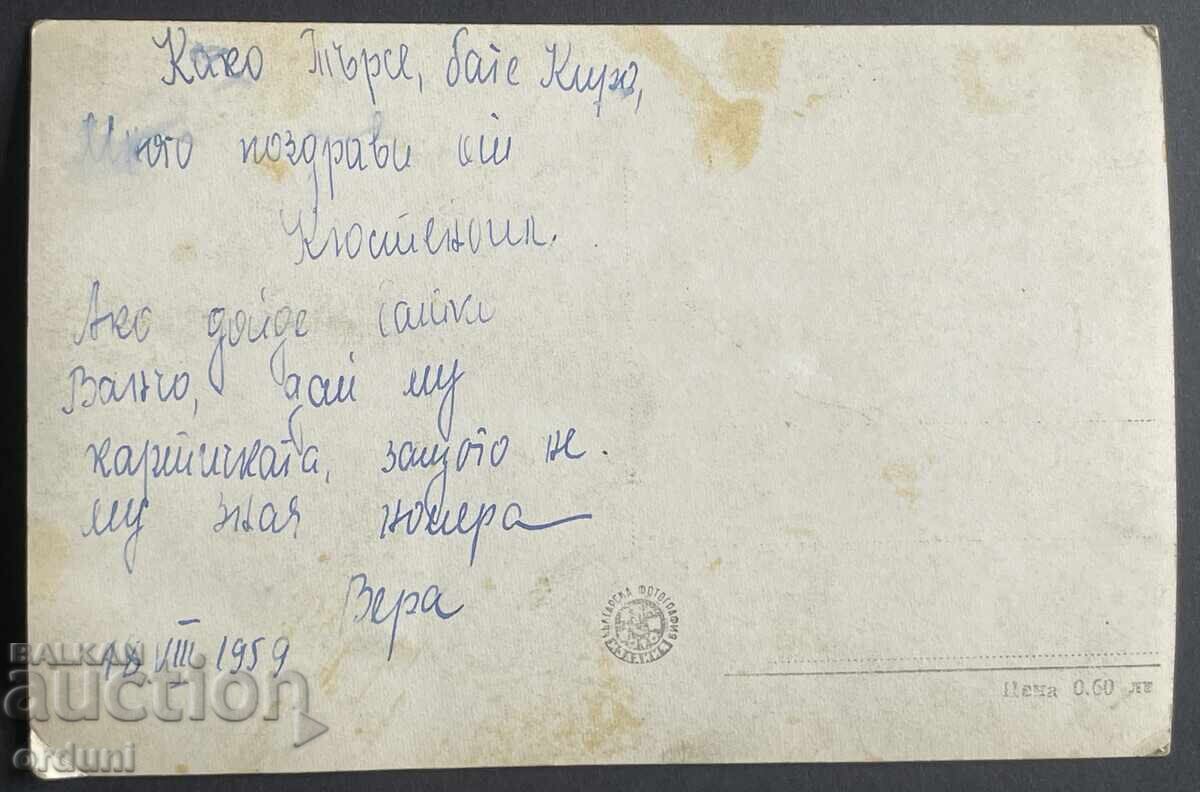 Како Търсе, бате Киро,
Много поздрави от
Кюстендил.
Ако дойде
Ванчо, дай му
картичката, защото не
му зная номера
Вера
18. VIII 1959
БЪЛГАРСКА ФОТОГРАФИЯ
Цена 0.60 лв
BALKAN
auction
orduni